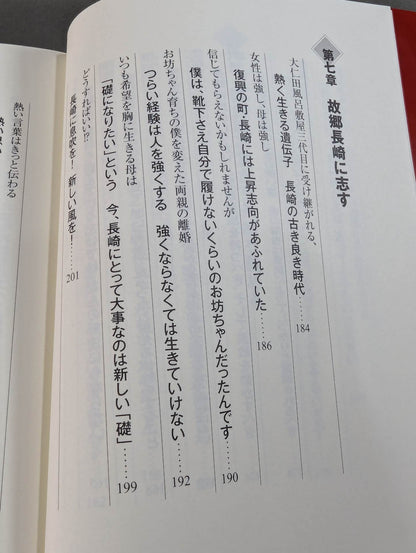 第七章 故郷長崎に志す
大仁田風呂敷屋三代目に受け継がれる、
熱く生きる遺伝子 長崎の古き良き時代……184
女性は強し、母は強し
復興の町・長崎には上昇志向があふれていた……186
信じてもらえないかもしれませんが
僕は、靴下さえ自分で履けないくらいのお坊ちゃんだったんです……190
お坊ちゃん育ちの僕を変えた両親の離婚
つらい経験は人を強くする 強くならなくては生きていけない……192
いつも希望を胸に生きる母は
「礎になりたい」という 今、長崎にとって大事なのは新しい「礎」……199
どうすればいい!?
長崎に息吹を!新しい風を!……201
熱い言葉はきっと伝わる